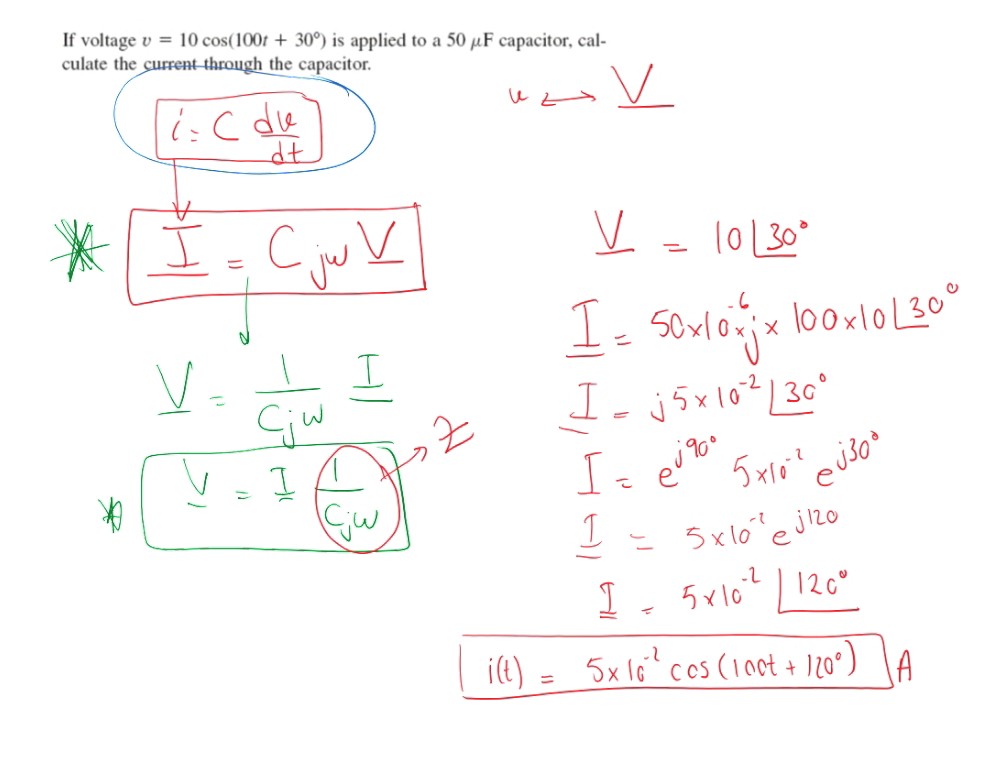 If voltage v = 10 cos(100t + 30°) is applied to a 50 μF capacitor, cal-
culate the current through the capacitor.
v ↔ V
i = C dv/dt
I = Cjw V
V = 1/Cjw I
V = I 1/Cjw → Z
V = 10∠30°
I = 50x10^-6 x j x 100x10∠30°
I = j5x10^-2∠30°
I = e^j90° 5x10^-2 e^j30°
I = 5x10^-2 e^j120
I = 5x10^-2 ∠120°
i(t) = 5x10^-2 cos(100t + 120°) A